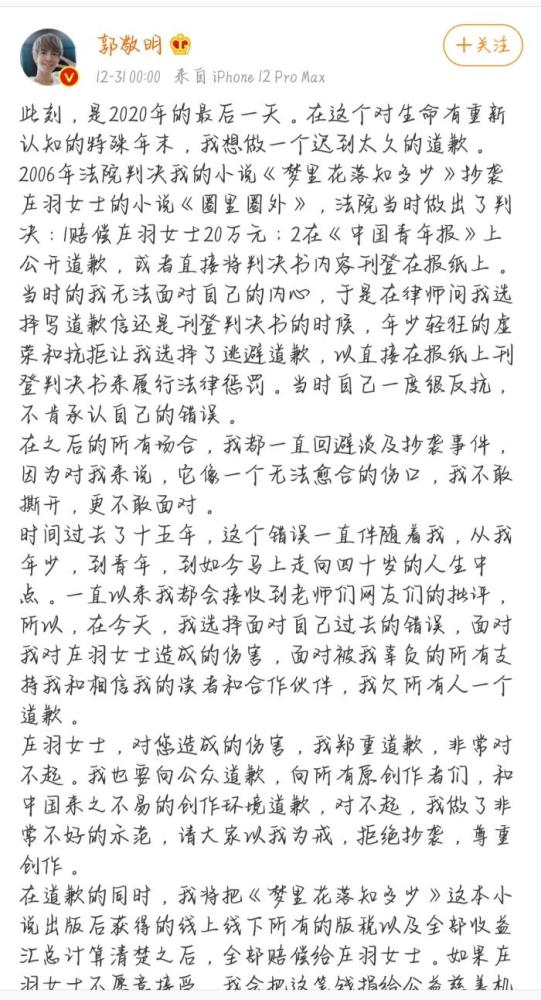 郭敬明
+关注
12-31 00:00 来自iPhone 12 Pro Max
此刻，是2020年的最后一天。在这个对生命有重新
认知的特殊年末，我想做一个迟到太久的道歉。
2006年法院判决我的小说《梦里花落知多少》抄袭
庄羽女士的小说《圈里圈外》，法院当时做出了判
决：1赔偿庄羽女士20万元；2在《中国青年报》上
公开道歉，或者直接将判决书内容刊登在报纸上。
当时的我无法面对自己的内心，于是在律师问我选
择写道歉信还是刊登判决书的时候，年少轻狂的虚
荣和抗拒让我选择了逃避道歉，以直接在报纸上刊
登判决书来履行法律惩罚。当时自己一度很反抗，
不肯承认自己的错误。
在之后的所有场合，我都一直回避谈及抄袭事件，
因为对我来说，它像一个无法愈合的伤口，我不敢
撕开，更不敢面对。
时间过去了十五年，这个错误一直伴随着我，从我
年少，到青年，到如今马上走向四十岁的人生中
点。一直以来我都会接收到老师们网友们的批评，
所以，在今天，我选择面对自己过去的错误，面对
我对庄羽女士造成的伤害，面对被我辜负的所有支
持我和相信我的读者和合作伙伴，我欠所有人一个
道歉。
庄羽女士，对您造成的伤害，我郑重道歉，非常对
不起。我也要向公众道歉，向所有原创作者们，和
中国来之不易的创作环境道歉，对不起，我做了非
常不好的示范，请大家以我为戒，拒绝抄袭，尊重
创作。
在道歉的同时，我将把《梦里花落知多少》这本小
说出版后获得的线上线下所有的版税以及全部收益
汇总计算清楚之后，全部赔偿给庄羽女士。如果庄
羽女士不愿意接受，我会把这笔钱捐给公益慈善机